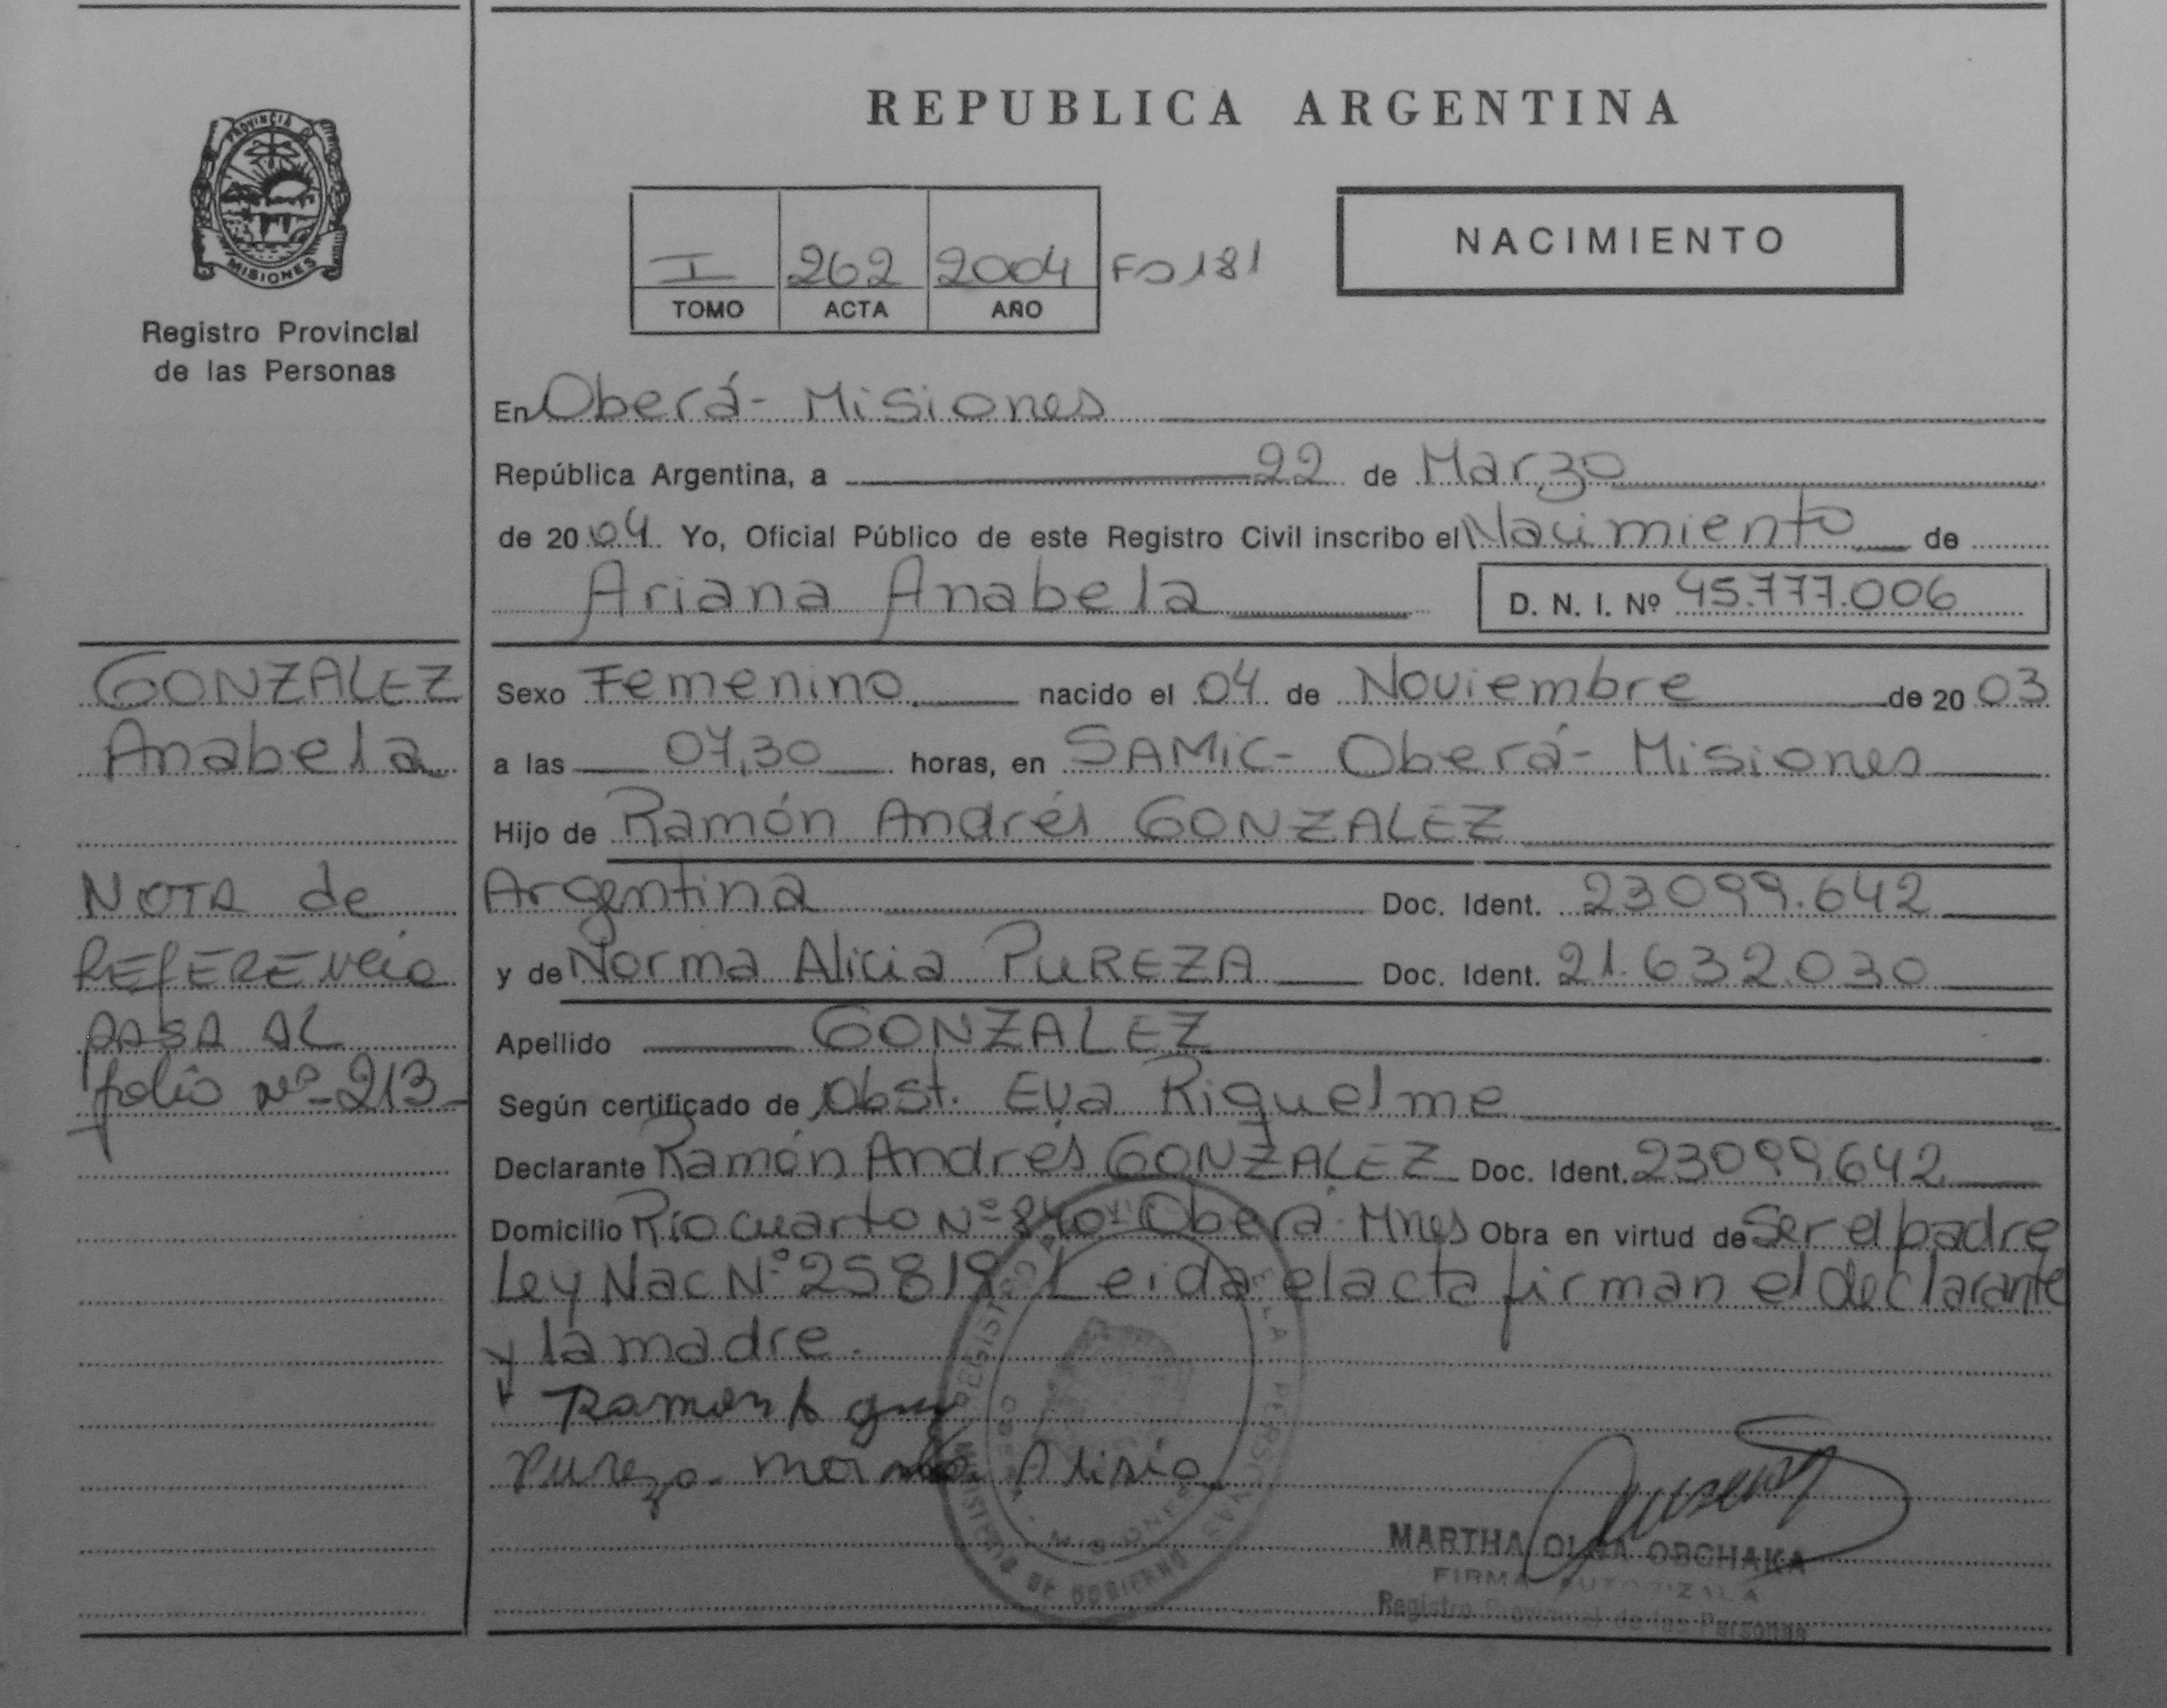 REPUBLICA ARGENTINA
PROVINCIA DE
MISIONES
Registro Provincial
de las Personas
I 262 2004 Fo 181
TOMO ACTA AÑO
NACIMIENTO
En Oberá - Misiones
República Argentina, a 22 de Marzo
de 2004. Yo, Oficial Público de este Registro Civil inscribo el Nacimiento de
Ariana Anabela D. N. I. Nº 45.777.006
GONZALEZ
Anabela
NOTA de
REFERENCIA
PASA AL
folio Nº 213
Sexo Femenino nacido el 04 de Noviembre de 2003
a las 07,30 horas, en SAMiC - Oberá - Misiones
Hijo de Ramón Andrés GONZALEZ
Argentina Doc. Ident. 23099.642
y de Norma Alicia PUREZA Doc. Ident. 21.632.030
Apellido GONZALEZ
Según certificado de Obst. Eva Riquelme
Declarante Ramón Andrés GONZALEZ Doc. Ident. 23099642
Domicilio Río cuarto Nº 840 - Oberá - Mnes Obra en virtud de Ser el padre
Ley Nac Nº 25819 Leida el acta firman el declarante
y la madre.
Ramon A
Pureza Alisia
MINISTERIO DE GOBIERNO
MISIONES
MARTHA OLGA OBCHAKA
FIRMA AUTORIZADA
Registro Provincial de las Personas